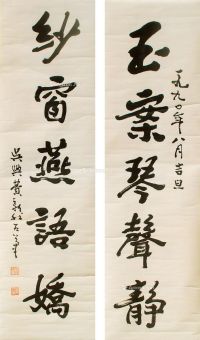 玉案琴聲靜
一九九〇年八月吉旦
紗窗燕語嬌
吳興費新我左筆